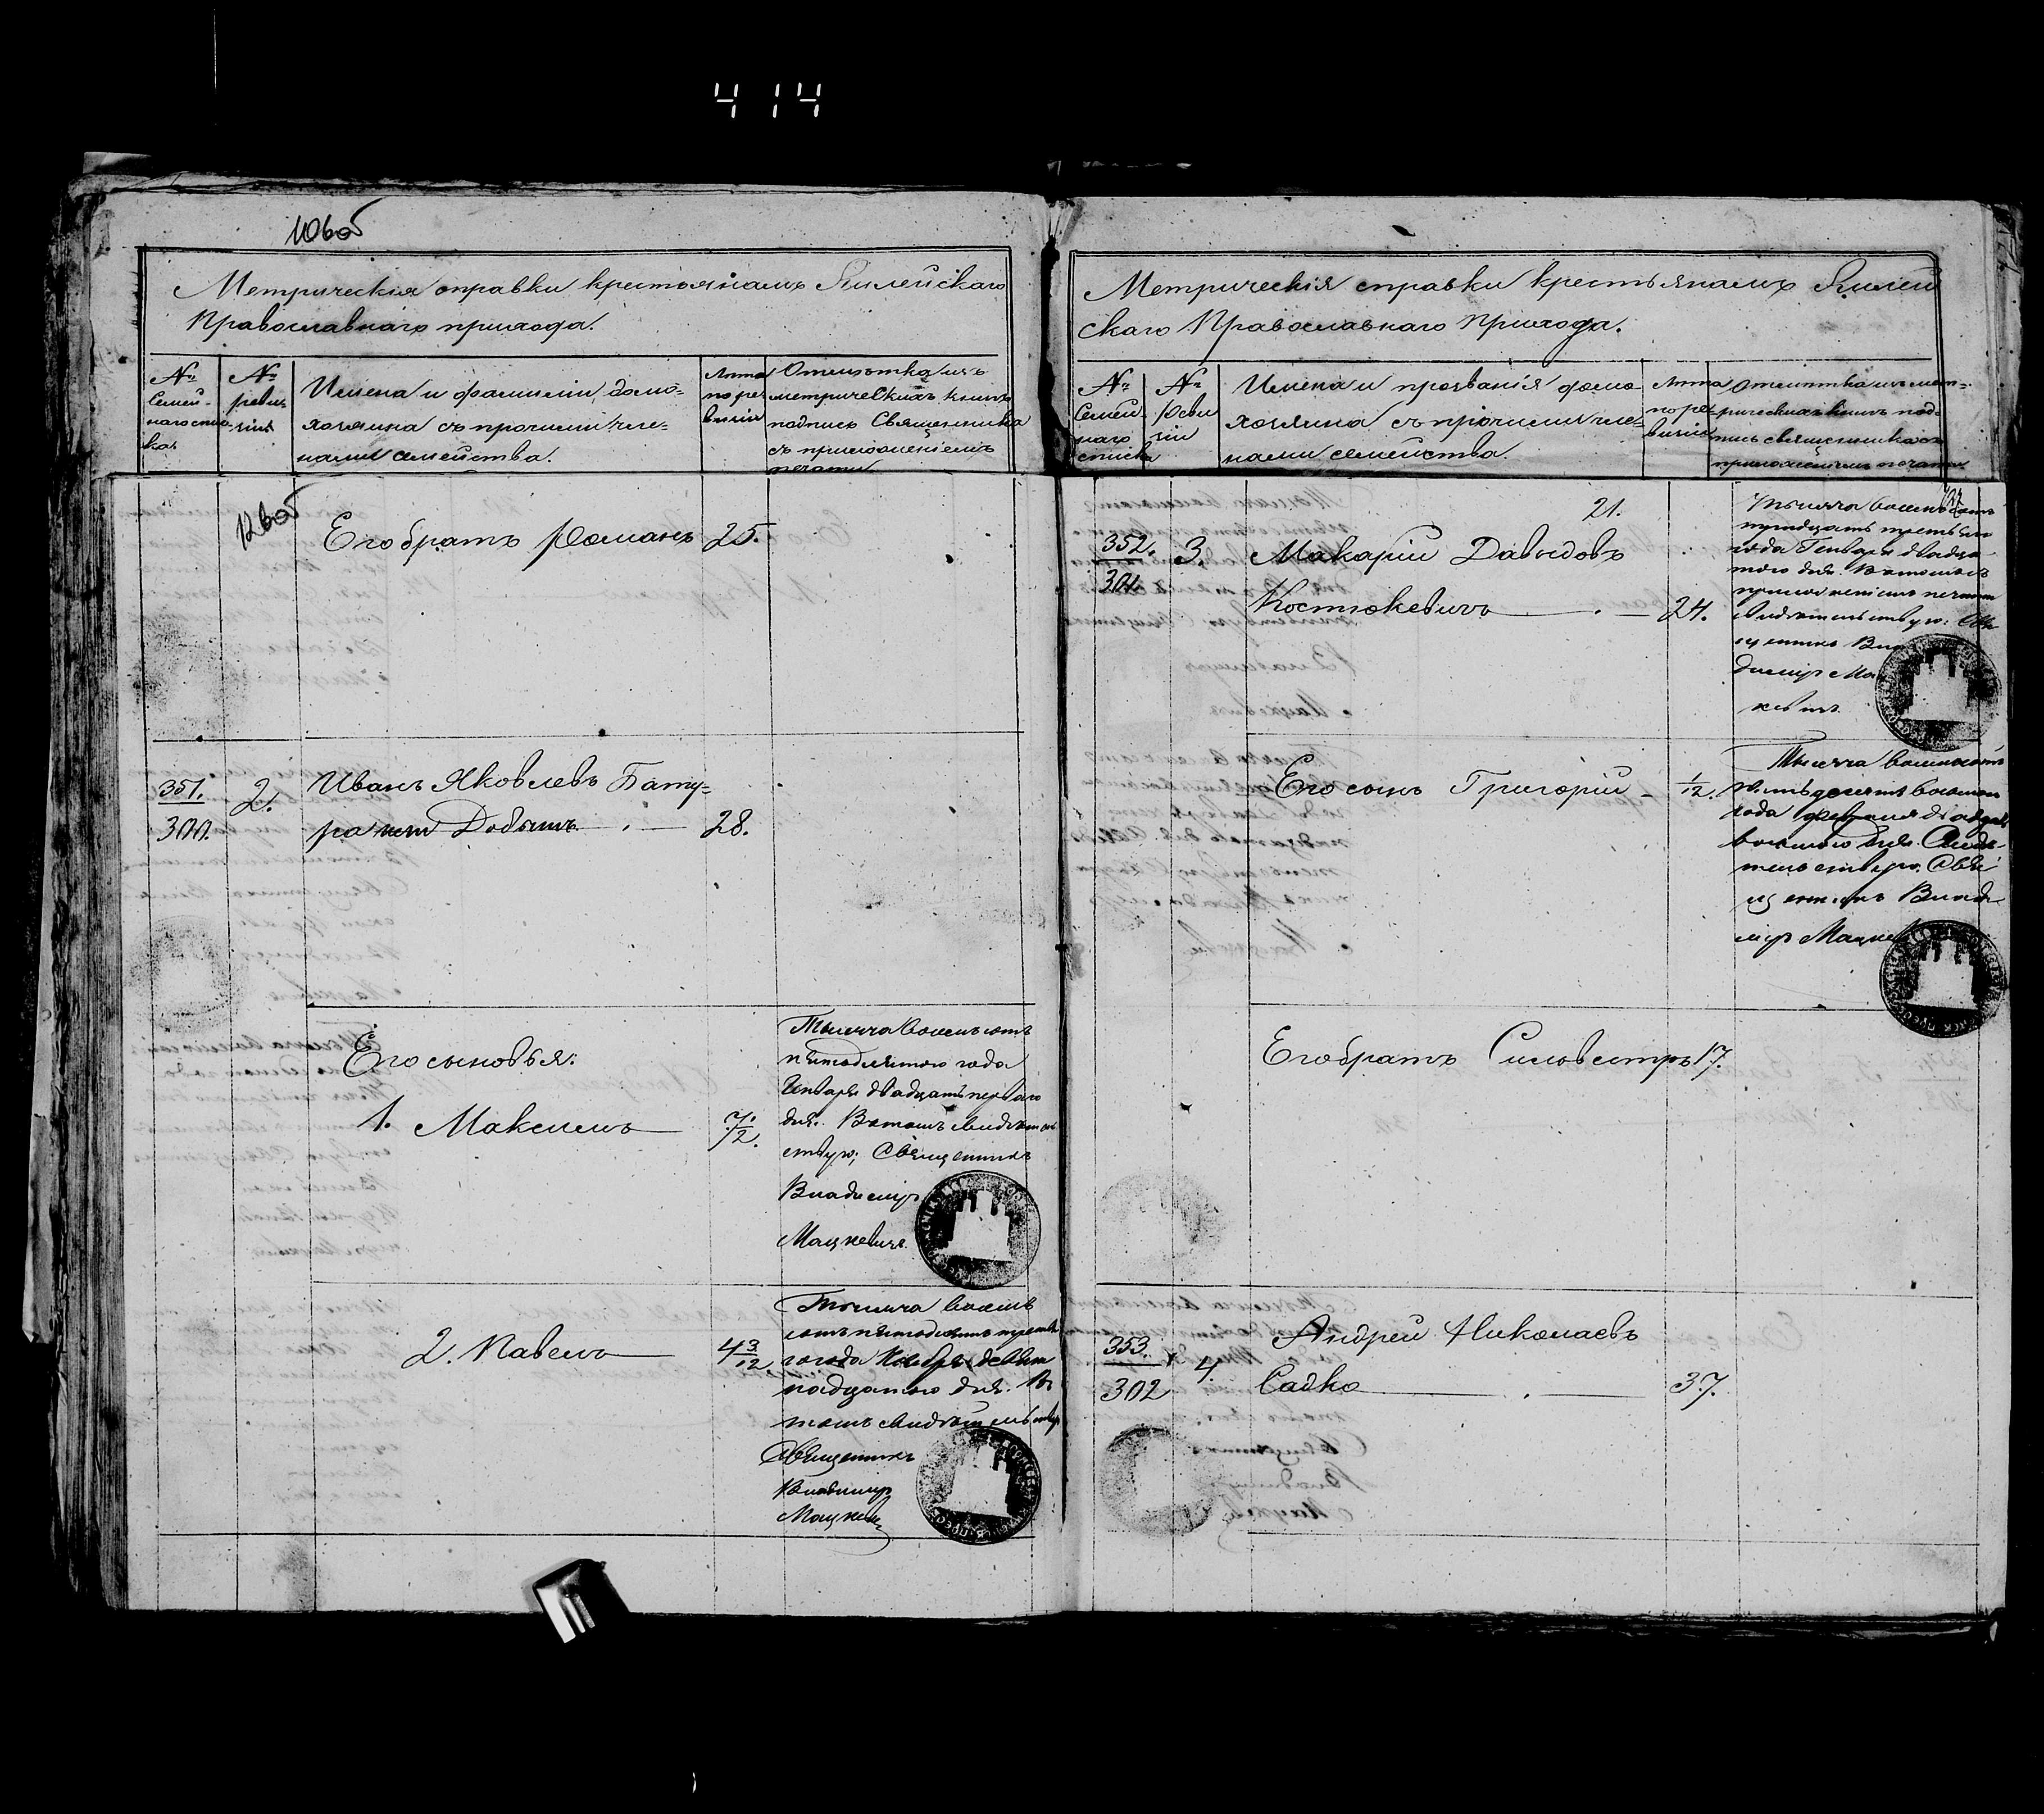 414
Метрическія справки крестьянамъ
Православнаго прихода.
№
Семей-
наго спис-
ка
№
реви-
зіи
Имена и фамиліи домо-
хозяина съ прочими чле-
нами семейства.
Лѣта
по ре
визіи
Отмѣтка изъ
метрическихъ книгъ
подпись Священника
съ приложеніемъ
печати
Его братъ Романъ 25.
351.
300.
2.
Иванъ Яковлевъ Бату-
ра или 28.
Его сыновья:
1. Максимъ 7/12.
Тысяча восемь сотъ
пятьдесятого года
Января двадцать перваго
дня. Въ томъ свидѣтель
ствую; Священникъ
Владиміръ
Мацкевичъ.
2. Павелъ 4 3/12
Тысяча восемь
сотъ пятьдесятъ третья
го года Ноября девят
надцатого дня. Въ
томъ свидѣтельствую
Священникъ
Владиміръ
Мацкевич
Метрическія справки крестьянамъ
скаго Православнаго Прихода.
№
Семей
наго
списка
№
Реви
зіи
Имена и прозванія домо-
хозяина съ прочими чле-
нами семейства.
Лѣта
по ре
визіи
Отмѣтка изъ мет-
рическихъ книгъ под-
пись священника съ
приложеніемъ печати
21.
352.
301
3.
Макарій Давыдовъ
Костюкевичъ 24.
Тысяча восемьсотъ
тридцать третьяго
года Генваря двадца-
того дня. Въ томъ съ
приложеніемъ печати
свидѣтельствую: Свя
щенникъ Вла
диміръ Мац
кевичъ
Его сынъ Григорій 1/12.
Тысяча восемьсотъ
пятьдесятъ восьмого
года февраля двадцать
восьмого дня. Свидѣ-
тельствую. Свя-
щенникъ Влади
міръ Мацке
Его братъ Сильвестръ 17.
353.
302
4.
Андрей Николаевъ
Садко 37.